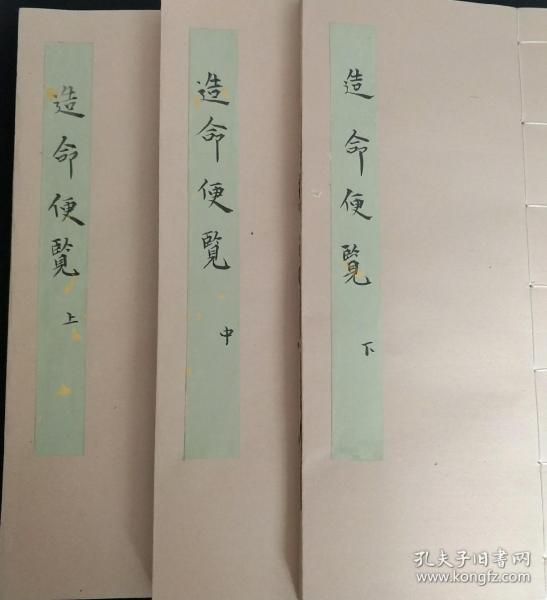 造命便覽 上
造命便覽 中
造命便覽 下
孔夫子旧书网
www.kongfz.com